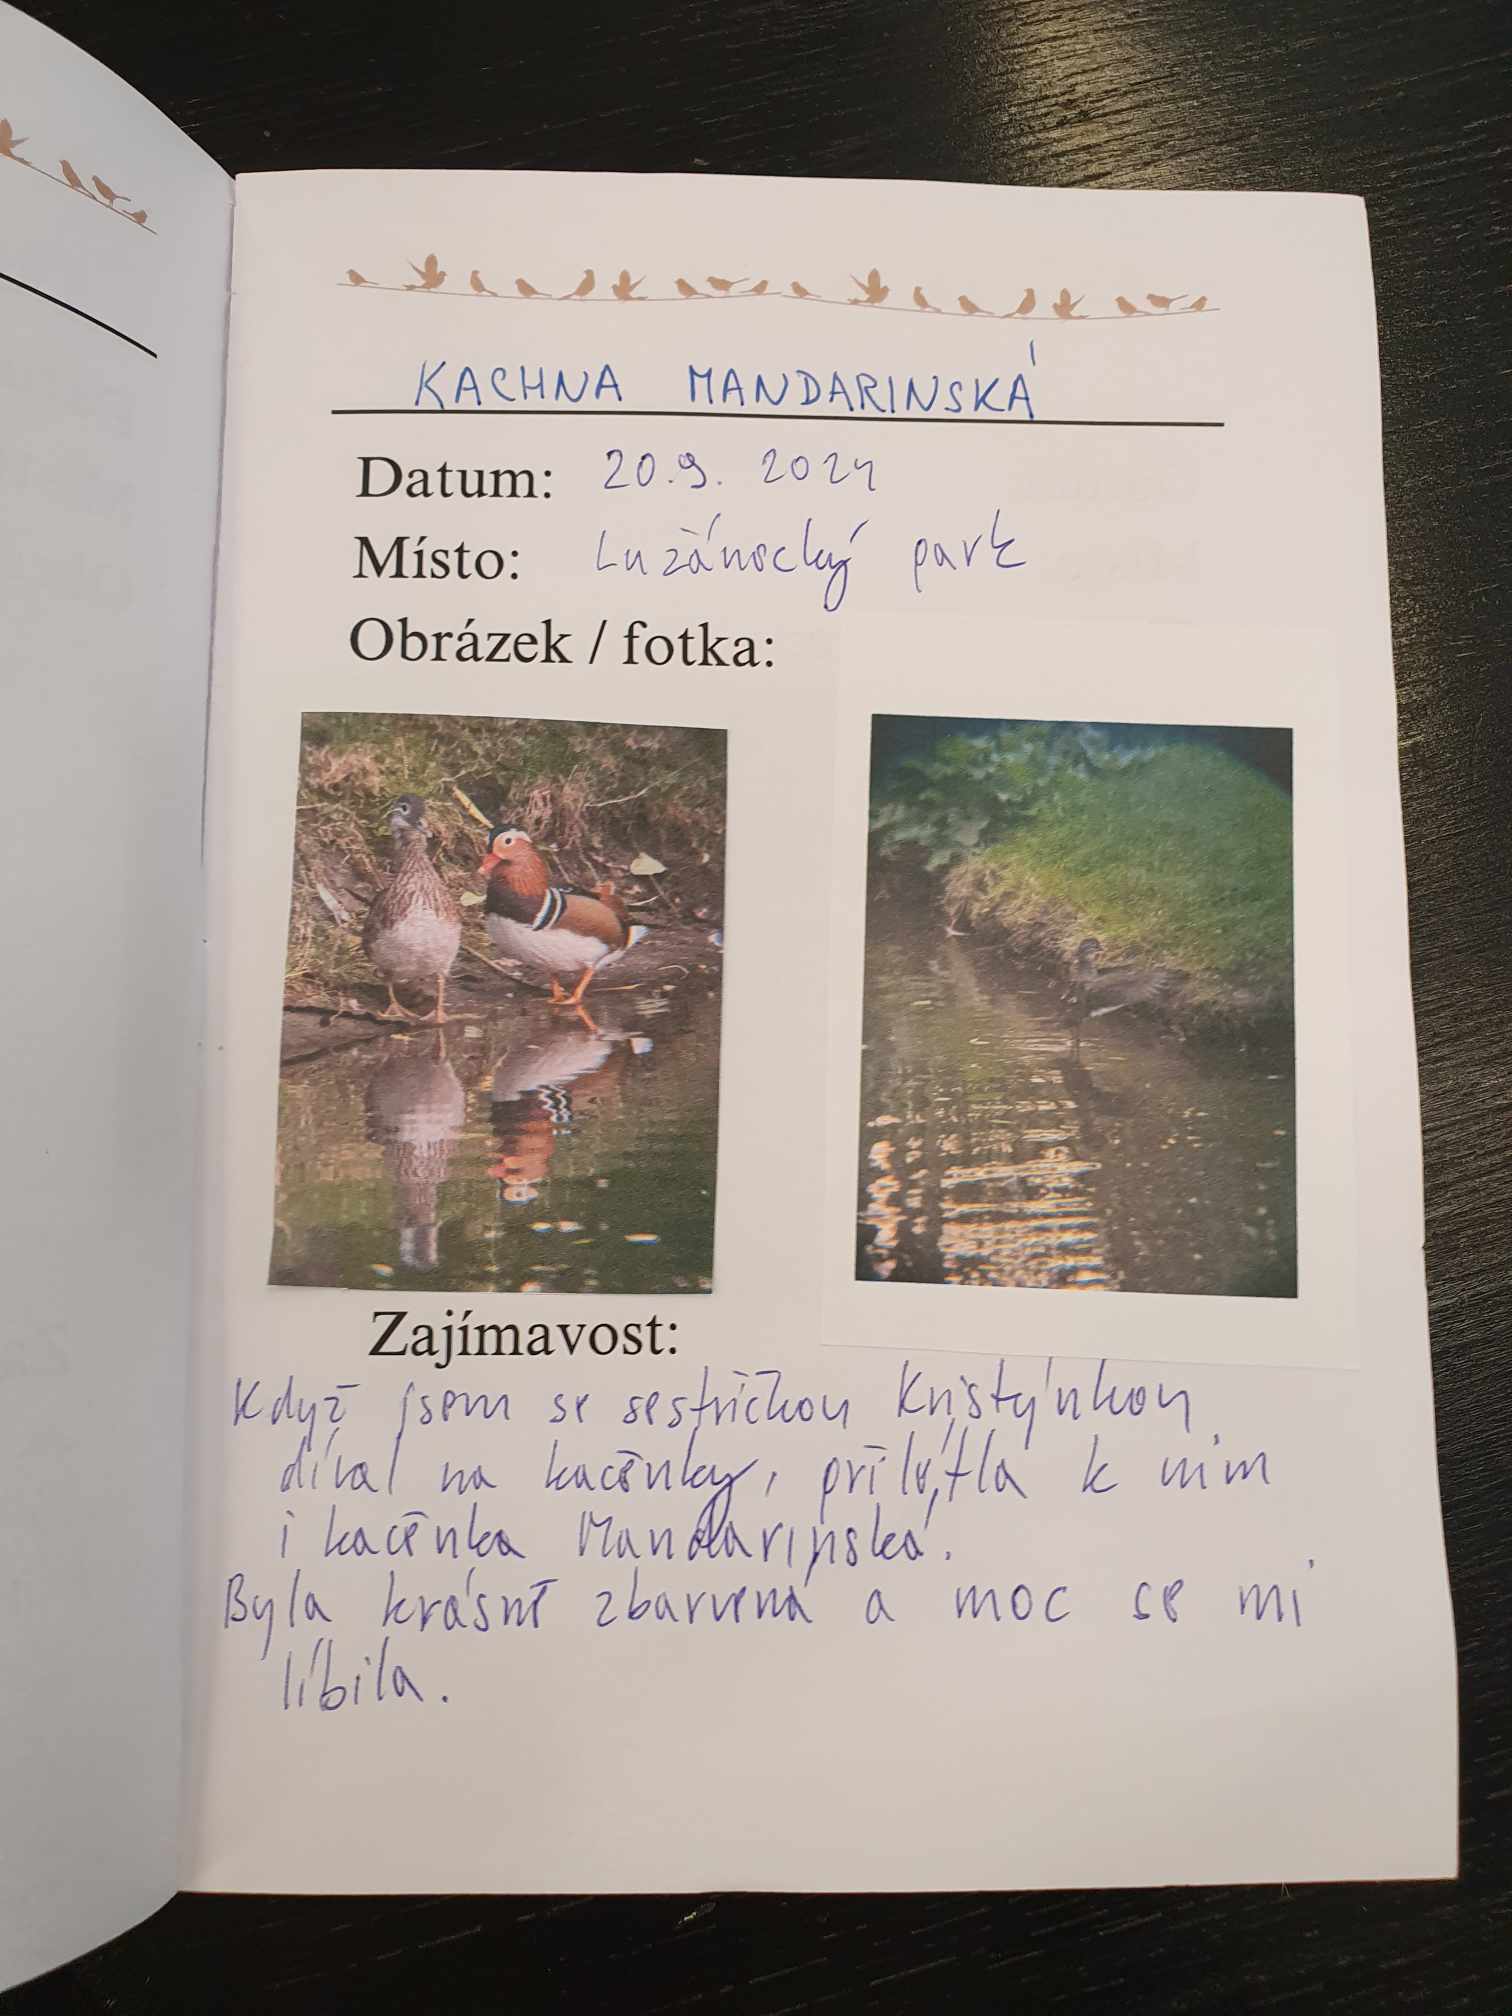 KACHNA MANDARINSKÁ
Datum: 20.9. 2024
Místo: Lužánecký park
Obrázek / fotka:
Zajímavost:
Když jsem se sestřičkou Kristýnkou
díval na kačenky, přilétla k nim
i kačenka Mandarinská.
Byla krásně zbarvená a moc se mi
líbila.